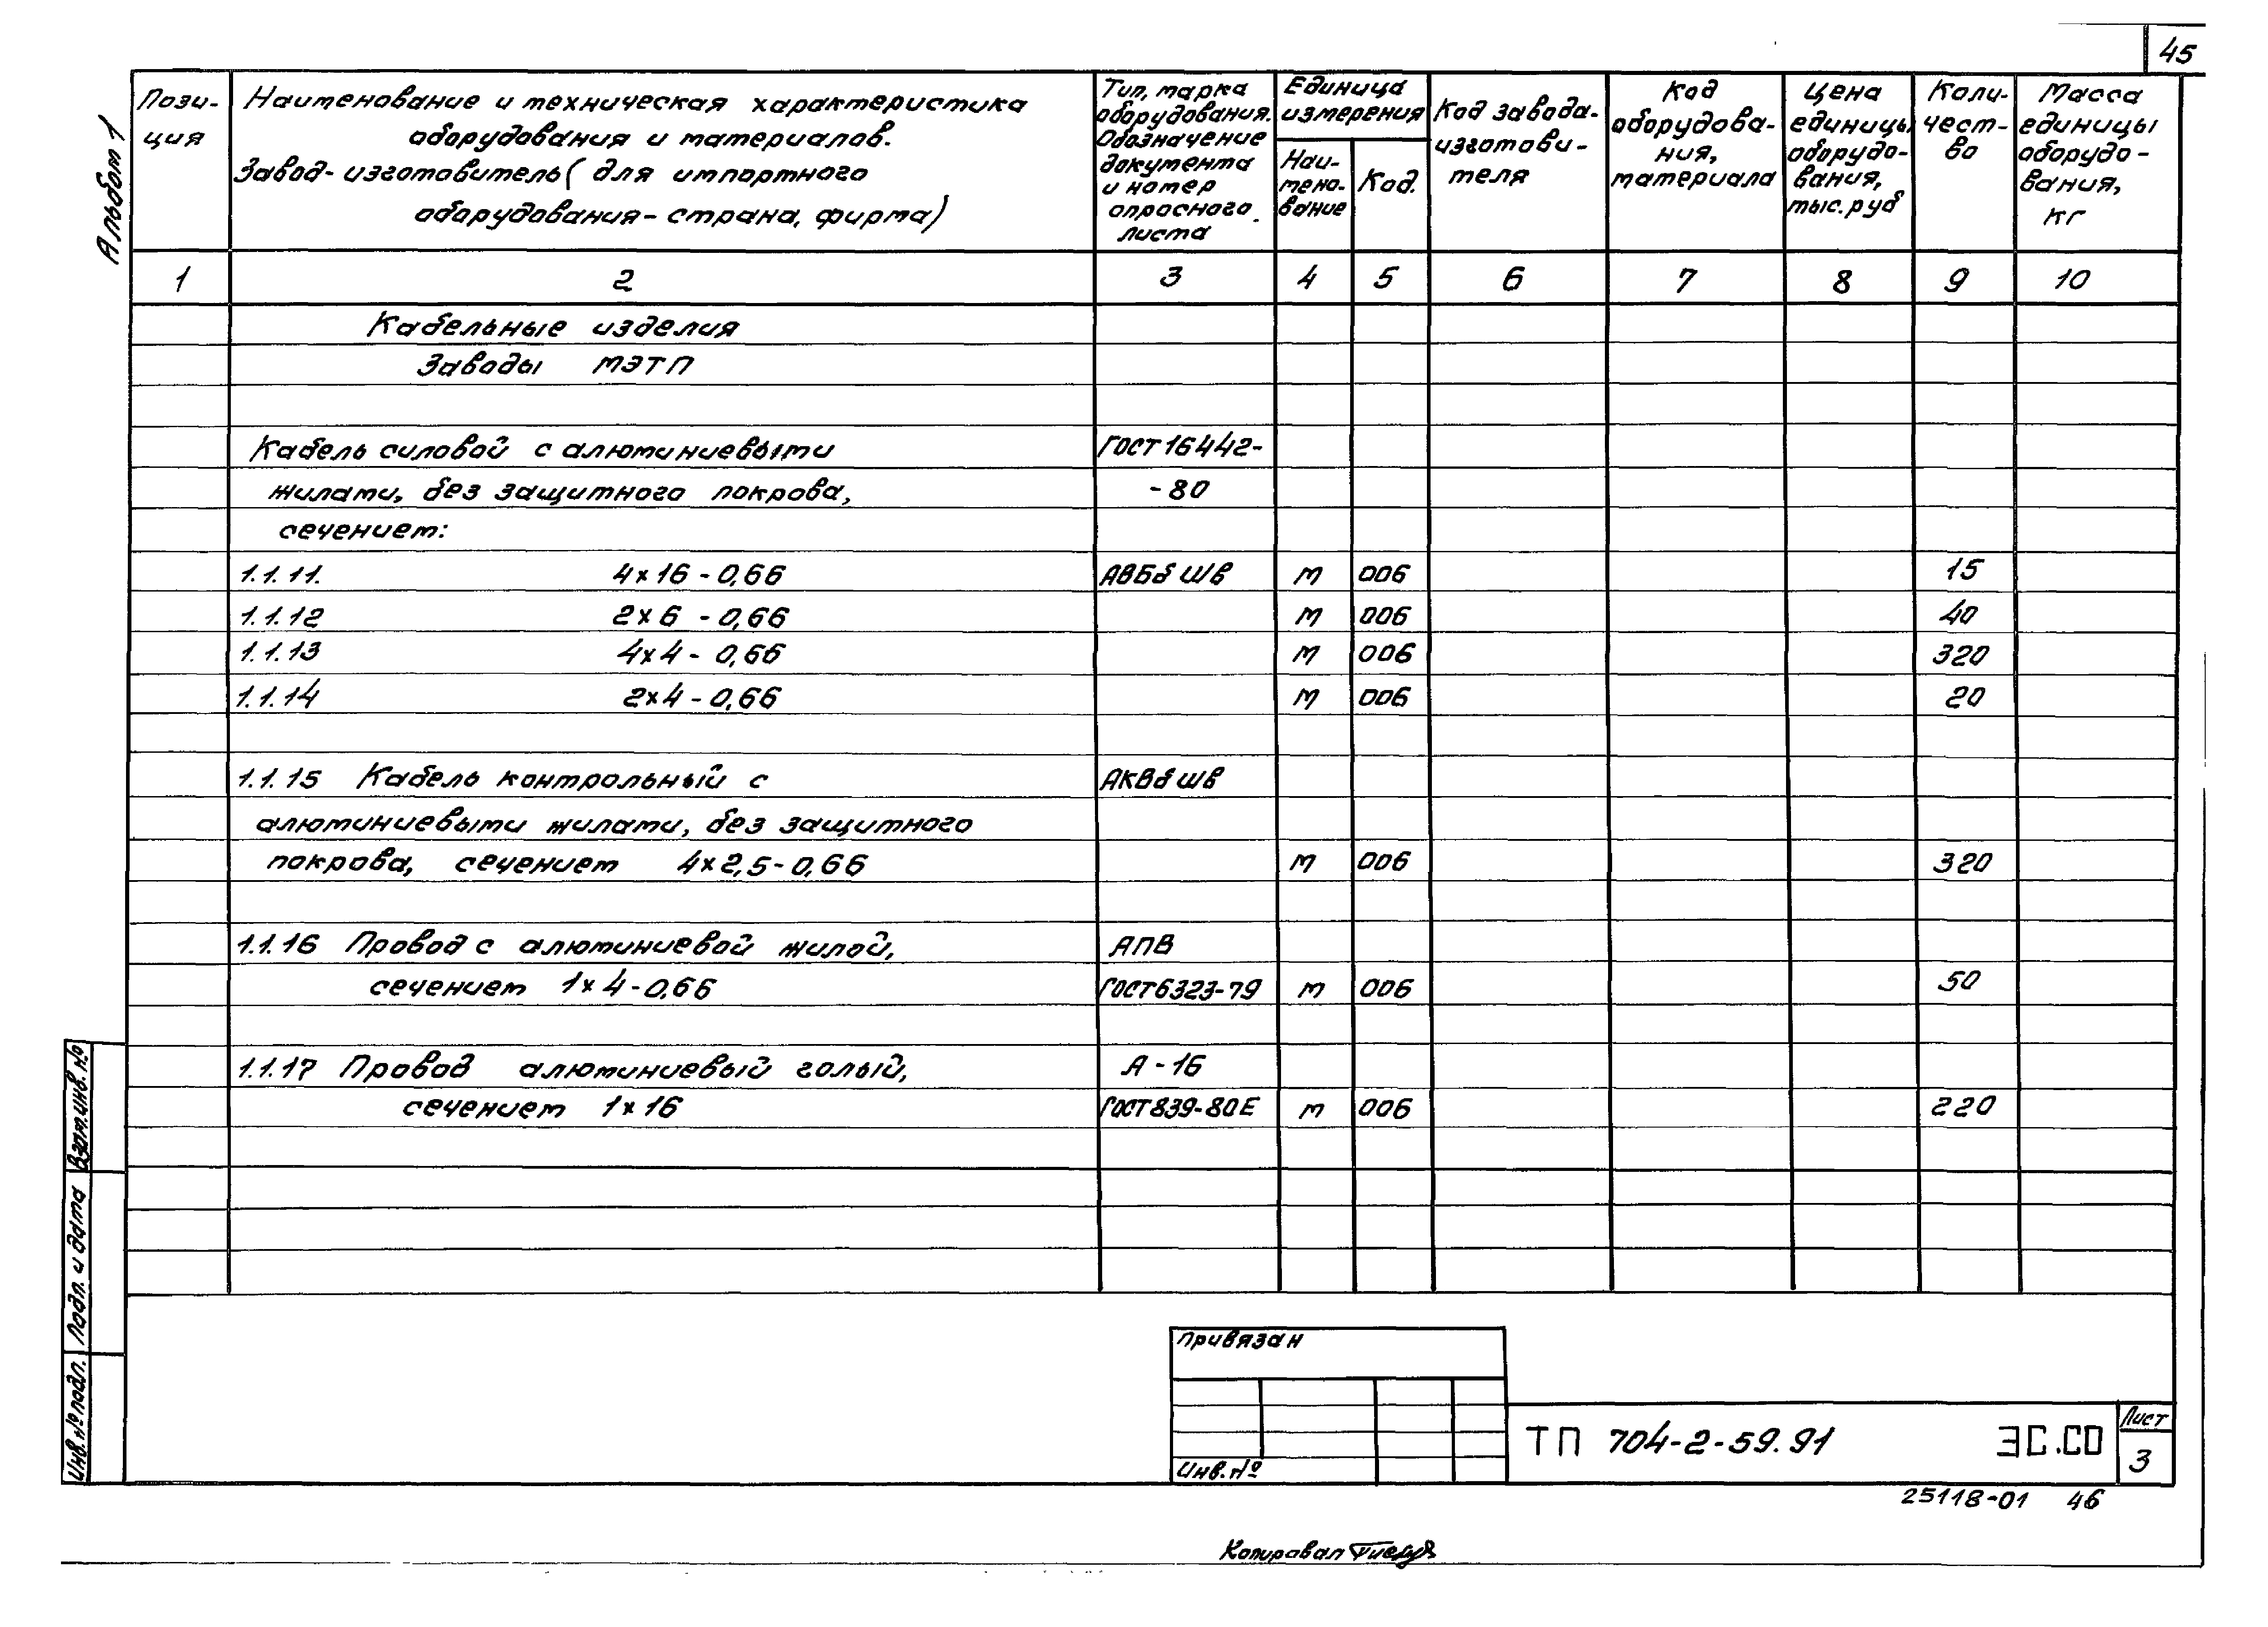 45
Альбом 1
Пози-
ция
Наименование и техническая характеристика
оборудования и материалов.
Завод-изготовитель (для импортного
оборудования - страна, фирма)
Тип, марка
оборудования.
Обозначение
документа
и номер
опросного
листа
Единица
измерения
Наи-
мено-
вание
Код.
Код завода-
изготови-
теля
Код
оборудова-
ния,
материала
Цена
единицы
оборудо-
вания,
тыс. руб
Коли-
чест-
во
Масса
единицы
оборудо-
вания,
кг
1 2 3 4 5 6 7 8 9 10
Кабельные изделия
Заводы МЭТП
Кабель силовой с алюминиевыми ГОСТ 16442-
жилами, без защитного покрова, -80
сечением:
1.1.11. 4×16-0,66 АВБбШв м 006 15
1.1.12 2×6-0,66 м 006 40
1.1.13 4×4-0,66 м 006 320
1.1.14 2×4-0,66 м 006 20
1.1.15 Кабель контрольный с АКВбШв
алюминиевыми жилами, без защитного
покрова, сечением 4×2,5-0,66 м 006 320
1.1.16 Провод с алюминиевой жилой, АПВ
сечением 1×4-0,66 ГОСТ 6323-79 м 006 50
1.1.17 Провод алюминиевый голый, А-16
сечением 1×16 ГОСТ 839-80Е м 006 220
Взам. инв. №
Подп. и дата
Инв. № подл.
Привязан
Инв. №
ТП 704-2-59.91 ЭС.СО
Лист
3
25118-01 46
Копировал